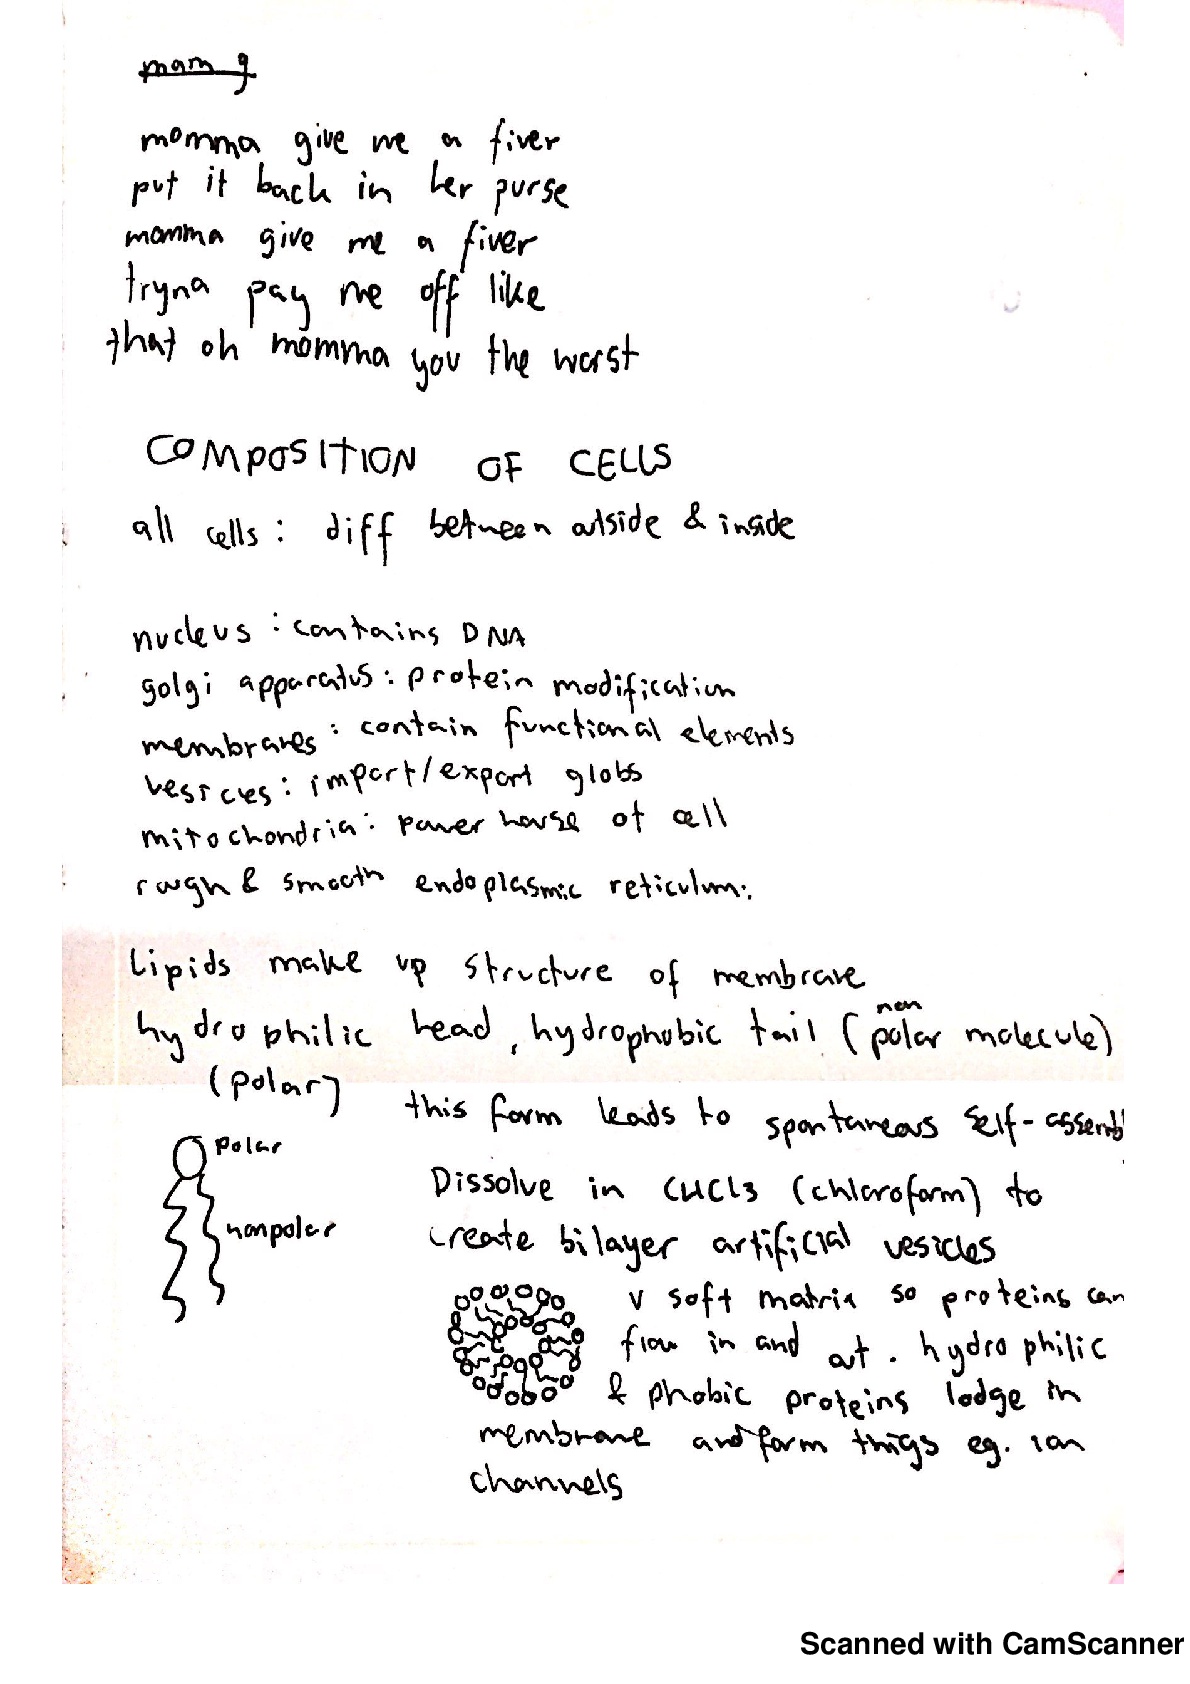 mam g
momma give me a fiver
put it back in her purse
momma give me a fiver
tryna pay me off like
that oh momma you the worst
COMPOSITION OF CELLS
all cells: diff between outside & inside
nucleus: contains DNA
golgi apparatus: protein modification
membranes: contain functional elements
vesicles: import/export globs
mitochondria: power house of cell
rough & smooth endoplasmic reticulum:
Lipids make up structure of membrane
non
hydrophilic head, hydrophobic tail (polar molecule)
(polar)
this form leads to spontaneous self-assembl
polar
Dissolve in CHCl3 (chloroform) to
nonpolar
create bilayer artificial vesicles
v soft matrix so proteins can
flow in and out. hydrophilic
& phobic proteins lodge in
membrane and form thigs eg. ion
channels
Scanned with CamScanner